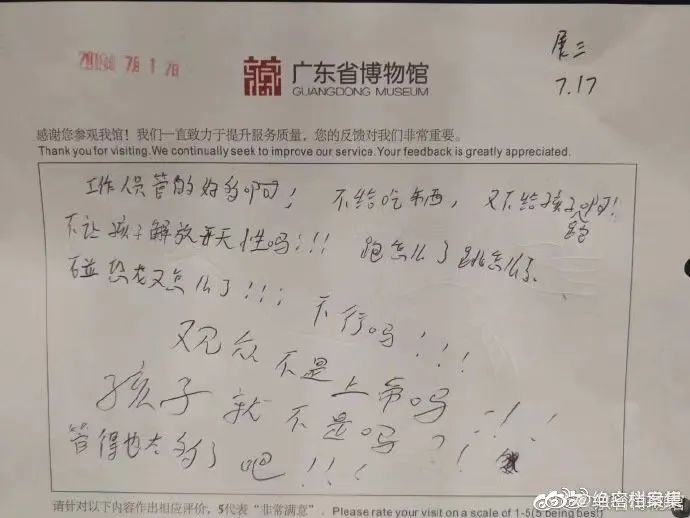 展三
7.17
广东省博物馆
GUANGDONG MUSEUM
感谢您参观我馆！我们一直致力于提升服务质量，您的反馈对我们非常重要。
Thank you for visiting.We continually seek to improve our service.Your feedback is greatly appreciated.
工作人员管的好多啊！ 不给吃东西，又不给孩子跑啊！
不让孩子解放天性吗！！！ 跑怎么了跳怎么了
碰恐龙又怎么了！！！ 不行吗！！！
观众不是上帝吗！！！
孩子就不是吗？！！
管得也太多了吧！！！
请针对以下内容作出相应评价，5代表“非常满意”。 Please rate your visit on a scale of 1-5(5 being best)
绝密档案集